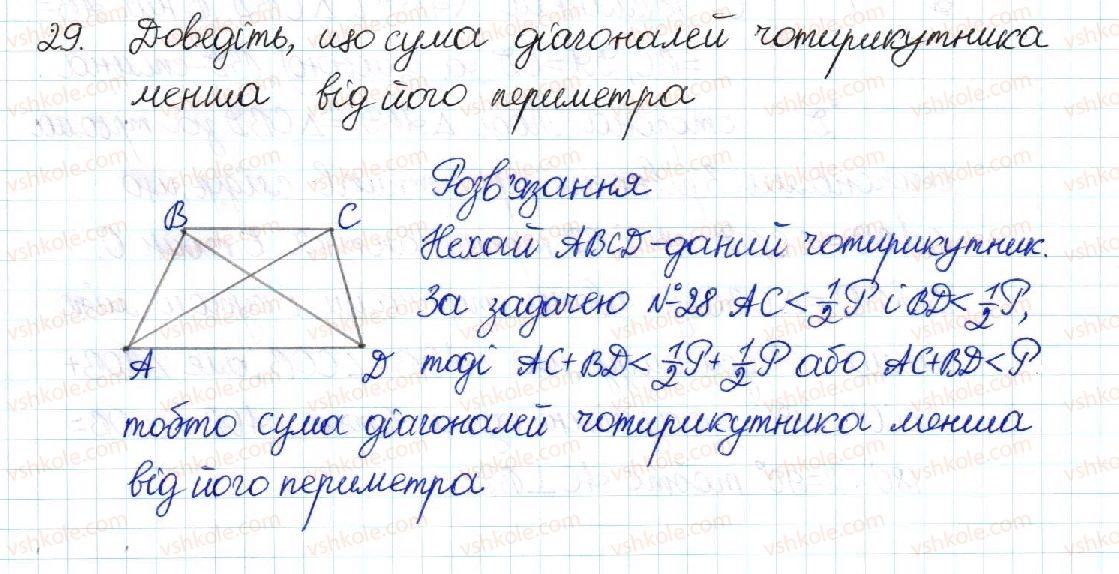 29. Доведіть, що сума діагоналей чотирикутника
менша від його периметра
Розв'язання
B C
Нехай ABCD - даний чотирикутник.
За задачею №28 AC < 1/2 P і BD < 1/2 P,
A D
тоді AC + BD < 1/2 P + 1/2 P або AC + BD < P
тобто сума діагоналей чотирикутника менша
від його периметра
vshkole.com